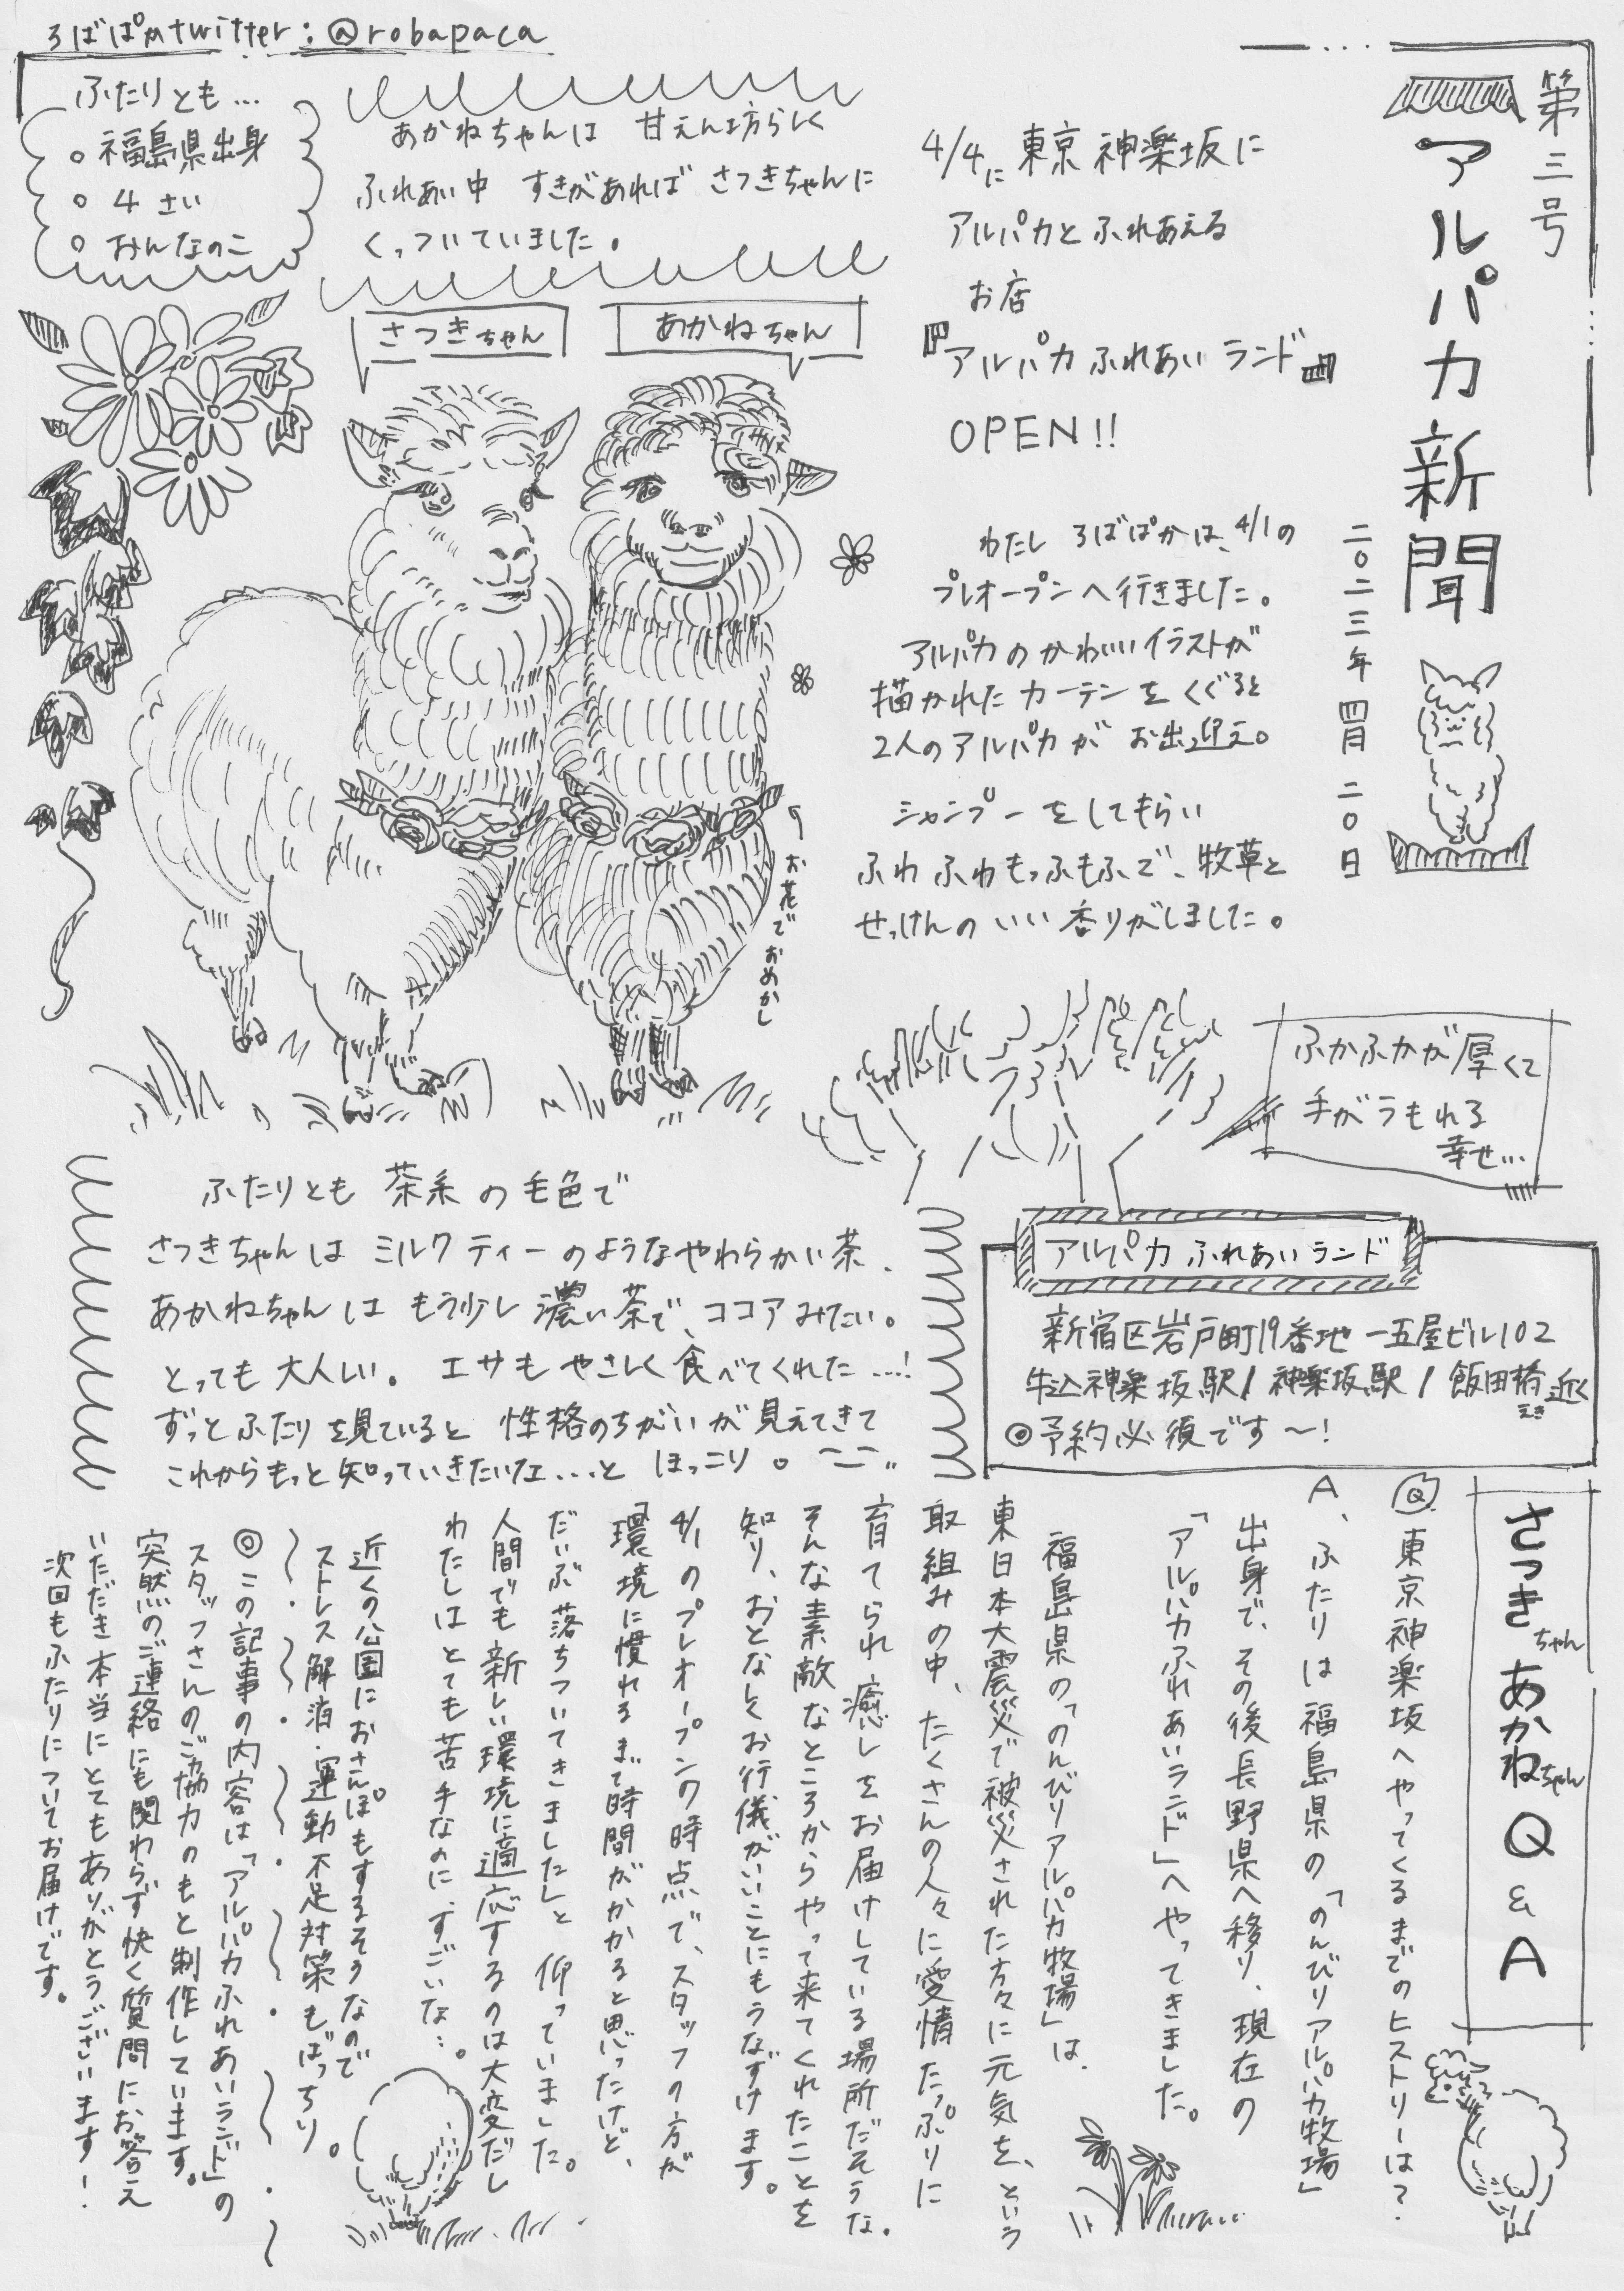 ろばぱかtwitter:@robapaca
第三号
アルパカ新聞
二〇二三年四月二〇日
4/4に東京神楽坂に
アルパカとふれあえる
お店
『アルパカふれあいランド』
OPEN!!
わたしろばぱかは、4/1の
プレオープンへ行きました。
アルパカのかわいいイラストが
描かれたカーテンをくぐると
2人のアルパカがお出迎え。
シャンプーをしてもらい
ふわふわもっふもふで、牧草と
せっけんのいい香りがしました。
ふたりとも…
○福島県出身
○4さい
○おんなのこ
あかねちゃんは甘えん坊らしく
ふれあい中すきがあればさつきちゃんに
くっついていました。
さつきちゃん
あかねちゃん
お花でおめかし
ふかふかが厚くて
手がうもれる
幸せ…
ふたりとも茶系の毛色で
さつきちゃんはミルクティーのようなやわらかい茶、
あかねちゃんはもう少し濃い茶で、ココアみたい。
とっても大人しい。エサもやさしく食べてくれた…!
ずっとふたりを見ていると性格のちがいが見えてきて
これからもっと知っていきたいなエ…とほっこり。
アルパカふれあいランド
新宿区岩戸町19番地一五屋ビル102
牛込神楽坂駅/神楽坂駅/飯田橋えき近く
◎予約必須です〜!
さつきちゃんあかねちゃんQ&A
Q.東京神楽坂へやってくるまでのヒストリーは?
A、ふたりは福島県の「のんびりアルパカ牧場」
出身で、その後長野県へ移り、現在の
「アルパカふれあいランド」へやってきました。
福島県の「のんびりアルパカ牧場」は、
東日本大震災で被災された方々に元気を、という
取組みの中、たくさんの人々に愛情たっぷりに
育てられ癒しをお届けしている場所だそうな。
そんな素敵なところからやって来てくれたことを
知り、おとなしくお行儀がいいことにもうなずけます。
4/1のプレオープンの時点で、スタッフの方が
「環境に慣れるまで時間がかかると思ったけど、
だいぶ落ちついてきました」と仰っていました。
人間でも新しい環境に適応するのは大変だし
わたしはとても苦手なのに、すごいな…。
近くの公園におさんぽもするそうなので
ストレス解消・運動不足対策もばっちり。
◎この記事の内容は「アルパカふれあいランド」の
スタッフさんのご協力のもと制作しています。
突然のご連絡にも関わらず快く質問にお答え
いただき本当にとてもありがとうございます!
次回もふたりについてお届けです。